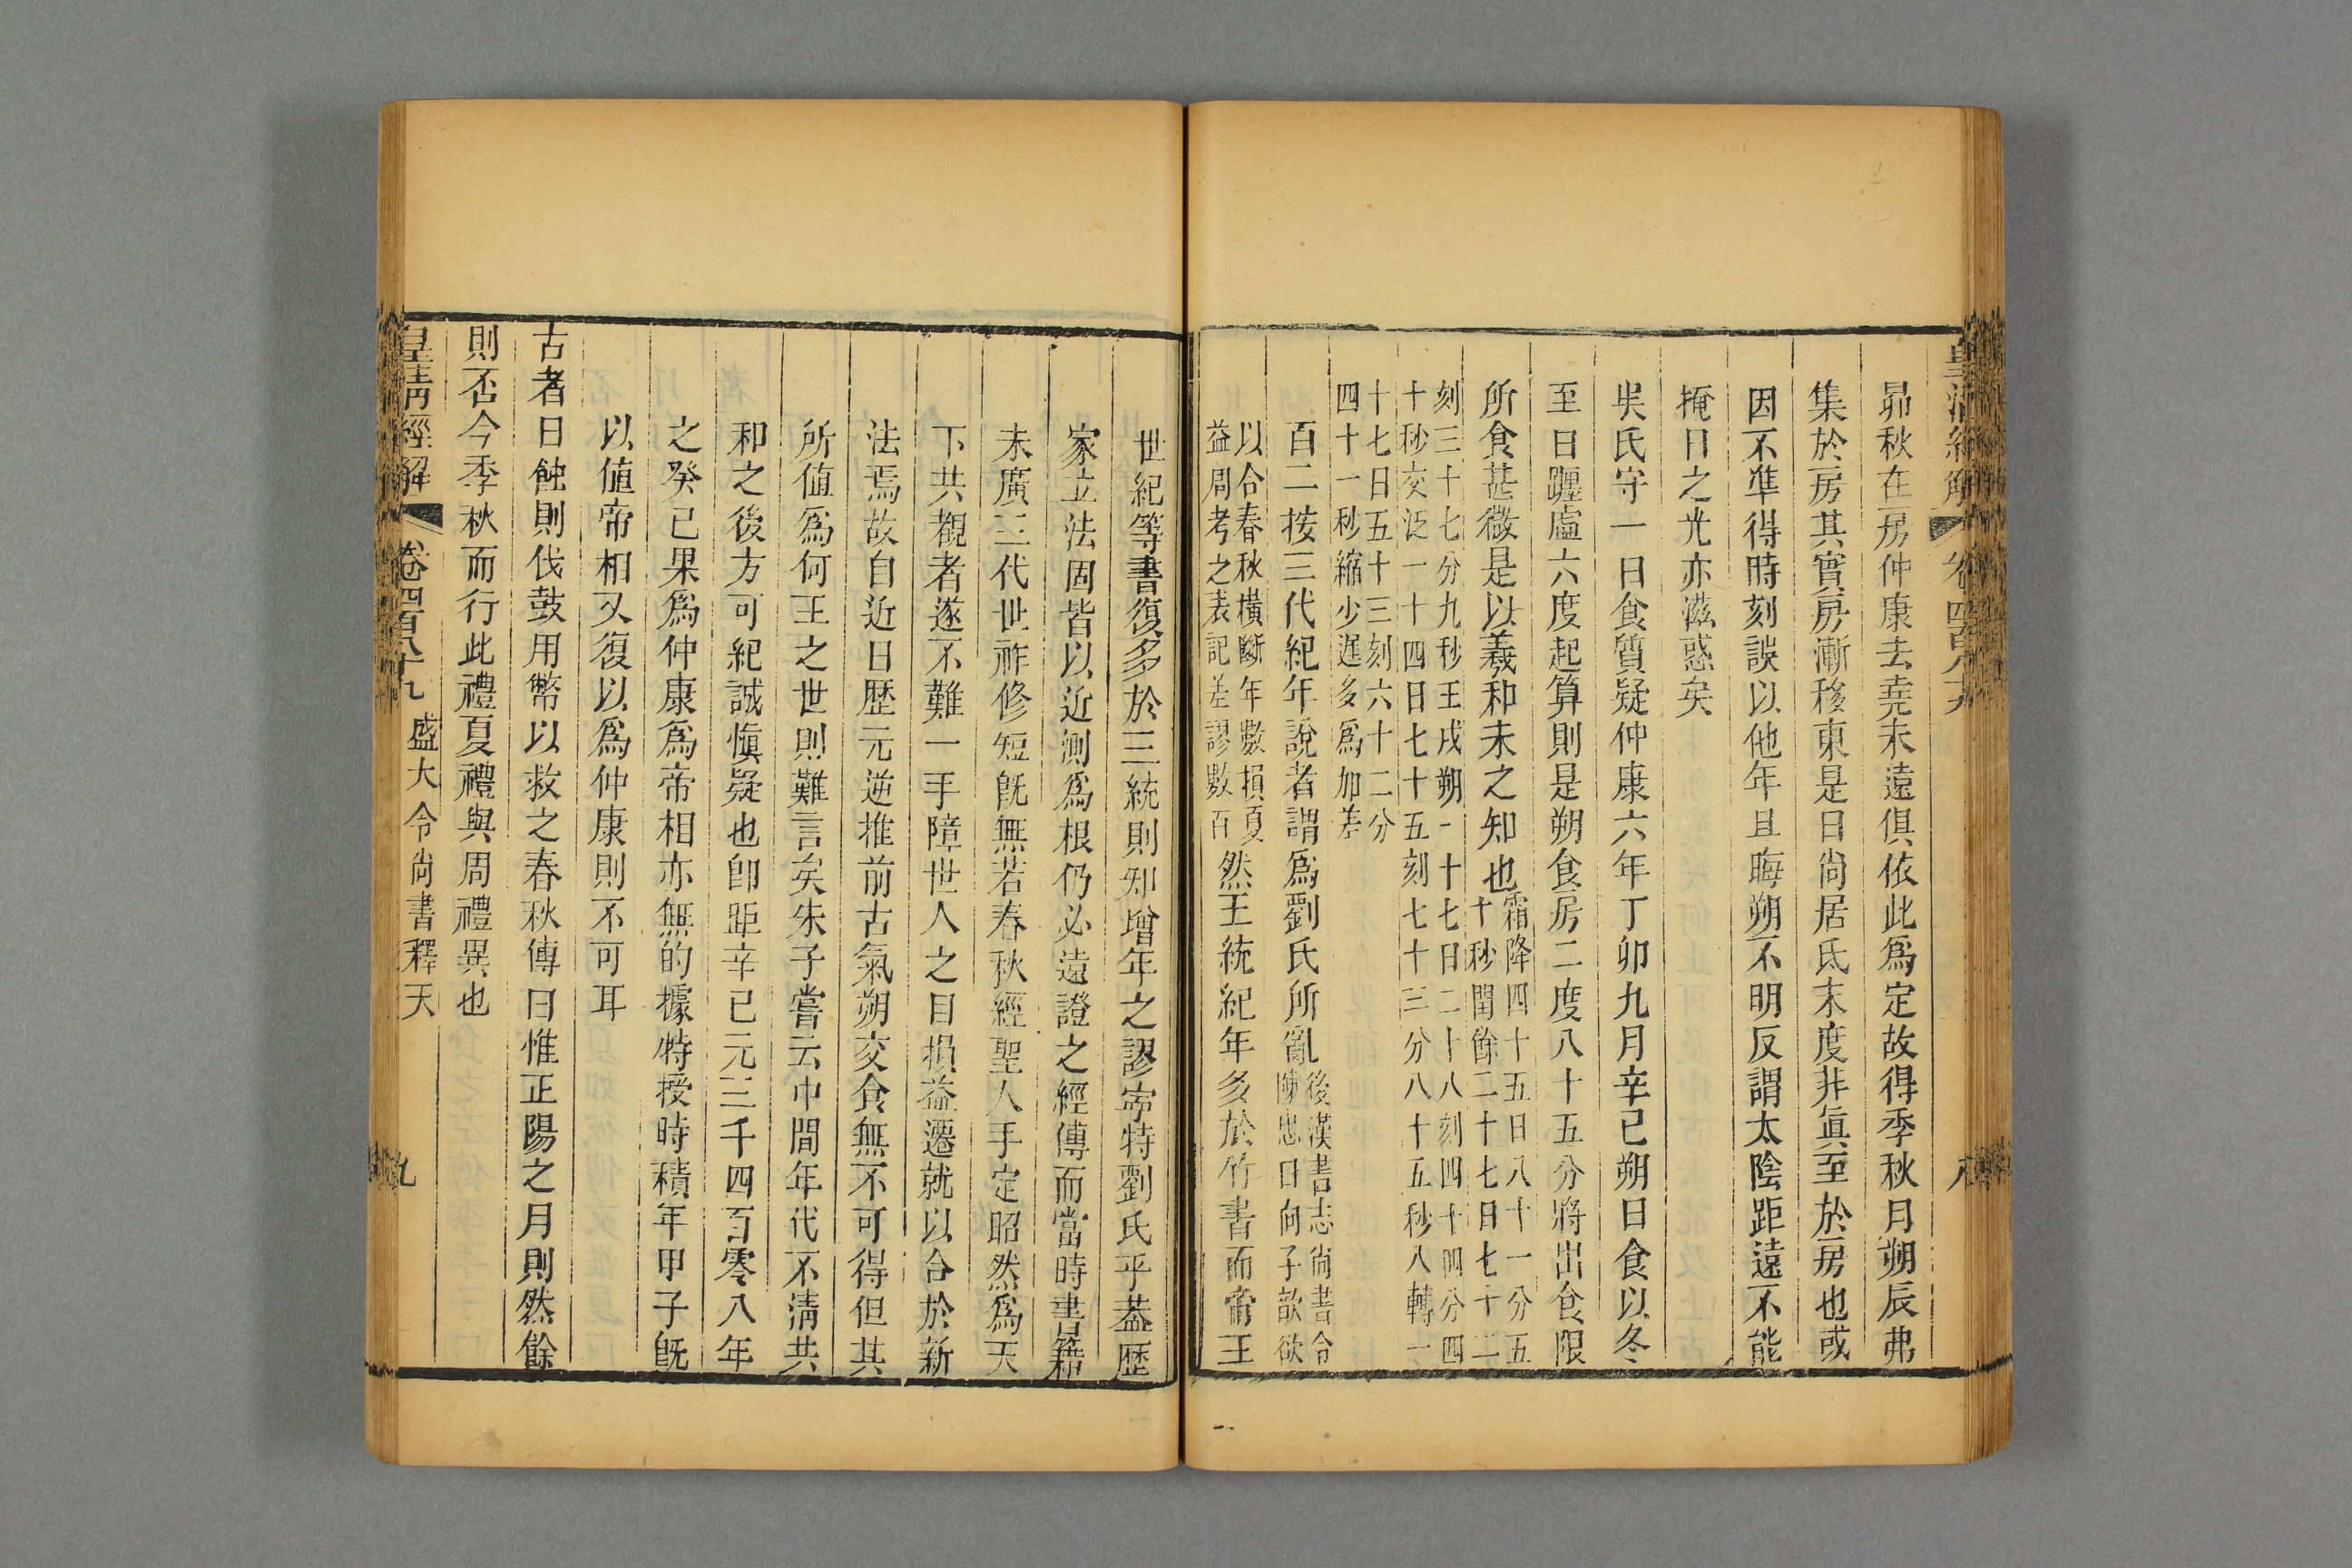 皇清經解 卷四百八十九 八
昴秋在房仲康去堯未遠俱依此爲定故得季秋月朔辰弗
集於房其實房漸移東是日尚居氐末度非眞至於房也或
因不準得時刻誤以他年且晦朔不明反謂太陰距遠不能
掩日之光亦滋惑矣
吳氏守一日食質疑仲康六年丁卯九月辛巳朔日食以冬
至日躔虛六度起算則是朔食房二度八十五分將出食限
所食甚微是以羲和未之知也霜降四十五日八十一分五
十秒閏餘二十七日七十二
刻三十七分九秒壬戌朔一十七日二十八刻四十四分四
十秒交泛一十四日七十五刻七十三分八十五秒八轉一
十七日五十三刻六十二分
四十一秒縮少遲多爲加差
百二按三代紀年說者謂爲劉氏所亂後漢書志尚書令
陳忠曰向子歆欲
以合春秋橫斷年數損夏
益周考之表記差謬數百然王統紀年多於竹書而帝王
世紀等書復多於三統則知增年之謬寧特劉氏乎葢歷
家立法固皆以近測爲根仍必遠證之經傳而當時書籍
未廣三代世祚修短旣無若春秋經聖人手定昭然爲天
下共觀者遂不難一手障世人之目損益遷就以合於新
法焉故自近日歷元逆推前古氣朔交食無不可得但其
所値爲何王之世則難言矣朱子嘗云中間年代不淸共
和之後方可紀誠愼疑也卽距辛巳元三千四百零八年
之癸巳果爲仲康爲帝相亦無的據特授時積年甲子旣
以値帝相又復以爲仲康則不可耳
古者日蝕則伐鼓用幣以救之春秋傳曰惟正陽之月則然餘
則否今季秋而行此禮夏禮與周禮異也
皇淸經解 卷四百八十九 盛大令尚書釋天 九